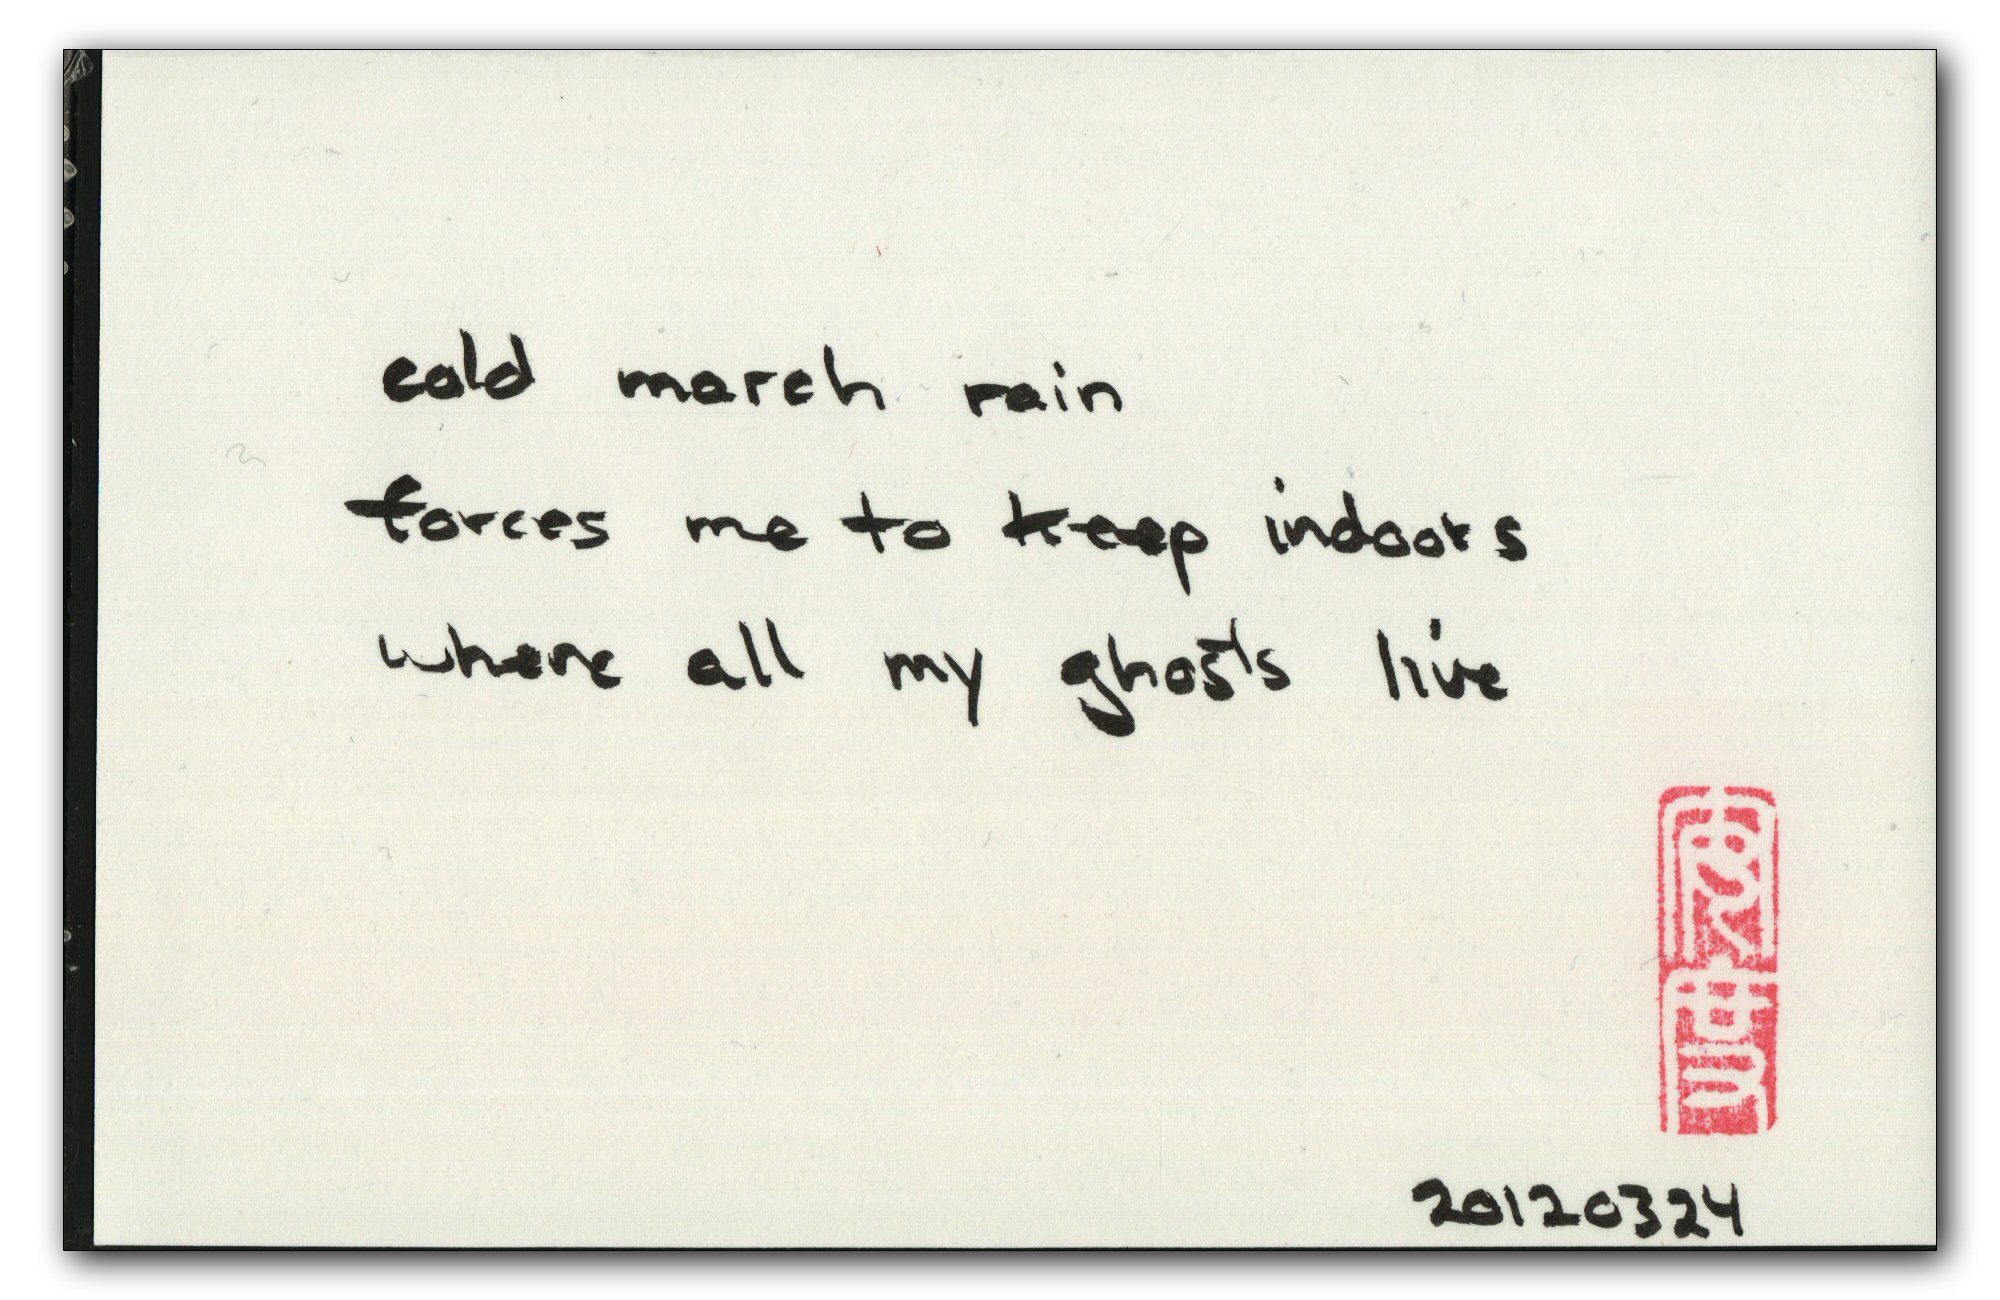 cold march rain
forces me to keep indoors
where all my ghosts live
20120324